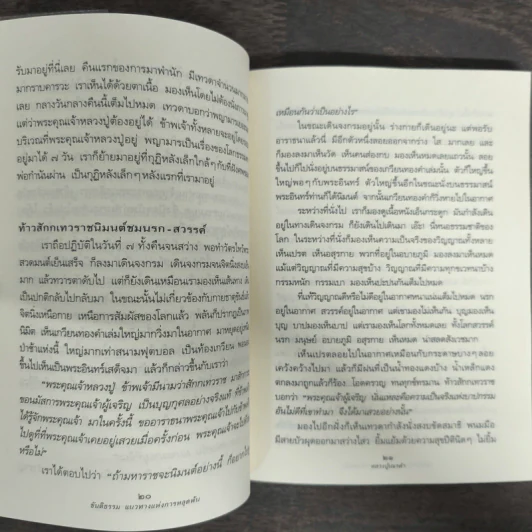 รับมาอยู่ที่นี่เลย คืนแรกของการมาพำนัก มีเทวดาจำนวนมาก
มากราบคารวะ เราเห็นได้ด้วยตาเนื้อ มองเห็นโดยไม่ต้องนั่ง
เลย กลางวันกลางคืนนี้เต็มไปหมด เทวดาบอกว่าพญามาร
แต่ว่าพระคุณเจ้าหลวงปู่ต้องอยู่ได้ ข้าพเจ้าทั้งหลายจะอยู่โดย
บริเวณที่พระคุณเจ้าหลวงปู่อยู่ พญามารเป็นเรื่องของโลก
อยู่มาได้ ๗ วัน เราก็ย้ายมาอยู่ที่กุฏิหลังเล็กใกล้ๆ
พ่อกำนันผ่าน เป็นกุฏิหลังเล็กๆ หลังแรกที่เรามาอยู่
ท้าวสักกเทวราชนิมนต์ชมนรก-สวรรค์
เราถือปฏิบัติในวันที่ ๗ ทั้งคืนจนสว่าง พอทำวัตรไหว้พระ
สวดมนต์เย็นเสร็จ ก็ลงมาเดินจงกรม เดินจงกรมจิตนิ่ง
มาก แล้วหวาราตาดับไป แต่ก็ยังเดินเหมือนเรามองเห็นเส้นทาง
เป็นปกติกลับไปกลับมา ในขณะนั้นไม่เกี่ยวข้องกับกายธาตุขันธ์
จิตนิ่งเหนือกาย เหนือการสัมผัสของโลกแล้ว พลันก็ปรากฏเป็น
นิมิต เห็นเกวียนทองคำเล่มใหญ่มากวิ่งมาในอากาศ มาหยุดอยู่
ป่าช้าแห่งนี้ ใหญ่มากเท่าสนามฟุตบอล เป็นท้องเกวียน
ขึ้นไปเห็นเป็นพระอินทร์เสด็จมา แล้วก็กล่าวขึ้นกับเราว่า
“พระคุณเจ้าหลวงปู่ ข้าพเจ้ามีนามว่าสักกเทวราช
ขอนมัสการพระคุณเจ้าผู้เจริญ เป็นบุญกุศลอย่างจริงแท้
ได้รู้จักพระคุณเจ้า มาในครั้งนี้ ขออาราธนาพระคุณเจ้าไป
ไปดูที่ที่พระคุณเจ้าเคยอยู่เสวยเมื่อครั้งก่อน พระคุณเจ้าจะ
หรือไม่”
เราได้ตอบไปว่า “ถ้ามหาราชจะนิมนต์อย่างนี้ ก็
๒๐
ขันติธรรม แนวทางแห่งการหลุดพ้น
เหมือนกันว่าเป็นอย่างไร”
ในขณะเดินจงกรมอยู่นั้น ร่างกายก็เดินอยู่นะ แต่พอรับ
อาราธนาแล้วนี้ มีอีกตัวหนึ่งลอยออกจากร่าง ใส มากเลย และ
ก็มองลงมาเห็นวัด เห็นคนส่องกบ มองเห็นหมดเลยแถวนั้น ลอย
ขึ้นไปก็ไปนั่งอยู่บนธรรมาสน์ของเกวียนทองคำนั้น ตัวก็ใหญ่ขึ้น
ใหญ่พอๆ กับพระอินทร์ ตัวใหญ่ขึ้นอีกในขณะนั่งบนธรรมาสน์
พระอินทร์ท่านก็ได้นิมนต์ จากนั้นเกวียนทองคำก็วิ่งหายไปในอากาศ
ระหว่างที่นั่งไป เราก็มองดูเนื้อหนังเอ็นกระดูก มันกำลังเดิน
อยู่ในทางเดินจงกรม ก็ยังเดินไปเดินมา เอ๊ะ! นี่หนะธรรมชาติของ
โลก ในระหว่างที่นั่งก็มองเห็นความเป็นจริงของวิญญาณทั้งหลาย
เห็นเปรต เห็นอสุรกาย พวกที่อยู่ในอบายภูมิ มองลงมาเห็นหมด
แม้แต่วิญญาณที่มีความสุขบ้าง วิญญาณที่มีความทุกขเวทนาบ้าง
กรรมหนัก กรรมเบา มองเห็นปะปนกันเต็มไปหมด
ที่แท้วิญญาณดีหรือไม่ดีอยู่ในอากาศหนาแน่นเต็มไปหมด นรก
อยู่ในอากาศ สวรรค์อยู่ในอากาศ แต่เขามองไม่เห็นกัน บุญมองเห็น
บุญ บาปมองเห็นบาป แต่เรามองเห็นโลกทั้งหมดเลย ทั้งโลกสวรรค์
นรก มนุษย์ อบายภูมิ อสุรกาย เห็นหมด น่าสลดสังเวชมาก
เห็นเปรตลอยไปในอากาศเหมือนกับกระดาษบางๆลอย
เคว้งคว้างไปมา แล้วก็มีฝนที่เป็นน้ำทองแดงบ้าง น้ำเหล็กแดง
ตกลงมาถูกแล้วก็ร้อง โอดครวญ ทนทุกข์ทรมาน ท้าวสักกเทวราช
บอกว่า “พระคุณเจ้าผู้เจริญ นั่นแหละคือความเป็นจริงแห่งเศษบาปกรรม
อันไม่ดีที่เขาทำมา จึงได้มาเสวยอย่างนั้น”
มองไปอีกฝั่งก็เห็นเทวดากำลังนั่งสงบขัดสมาธิ พนมมือ
มีสายบัวผุดออกมาสว่างไสว อิ่มแย้มด้วยความสุขปีตินิดๆ ไม่ยิ้ม
๒๑
หลวงปู่เณรคำ